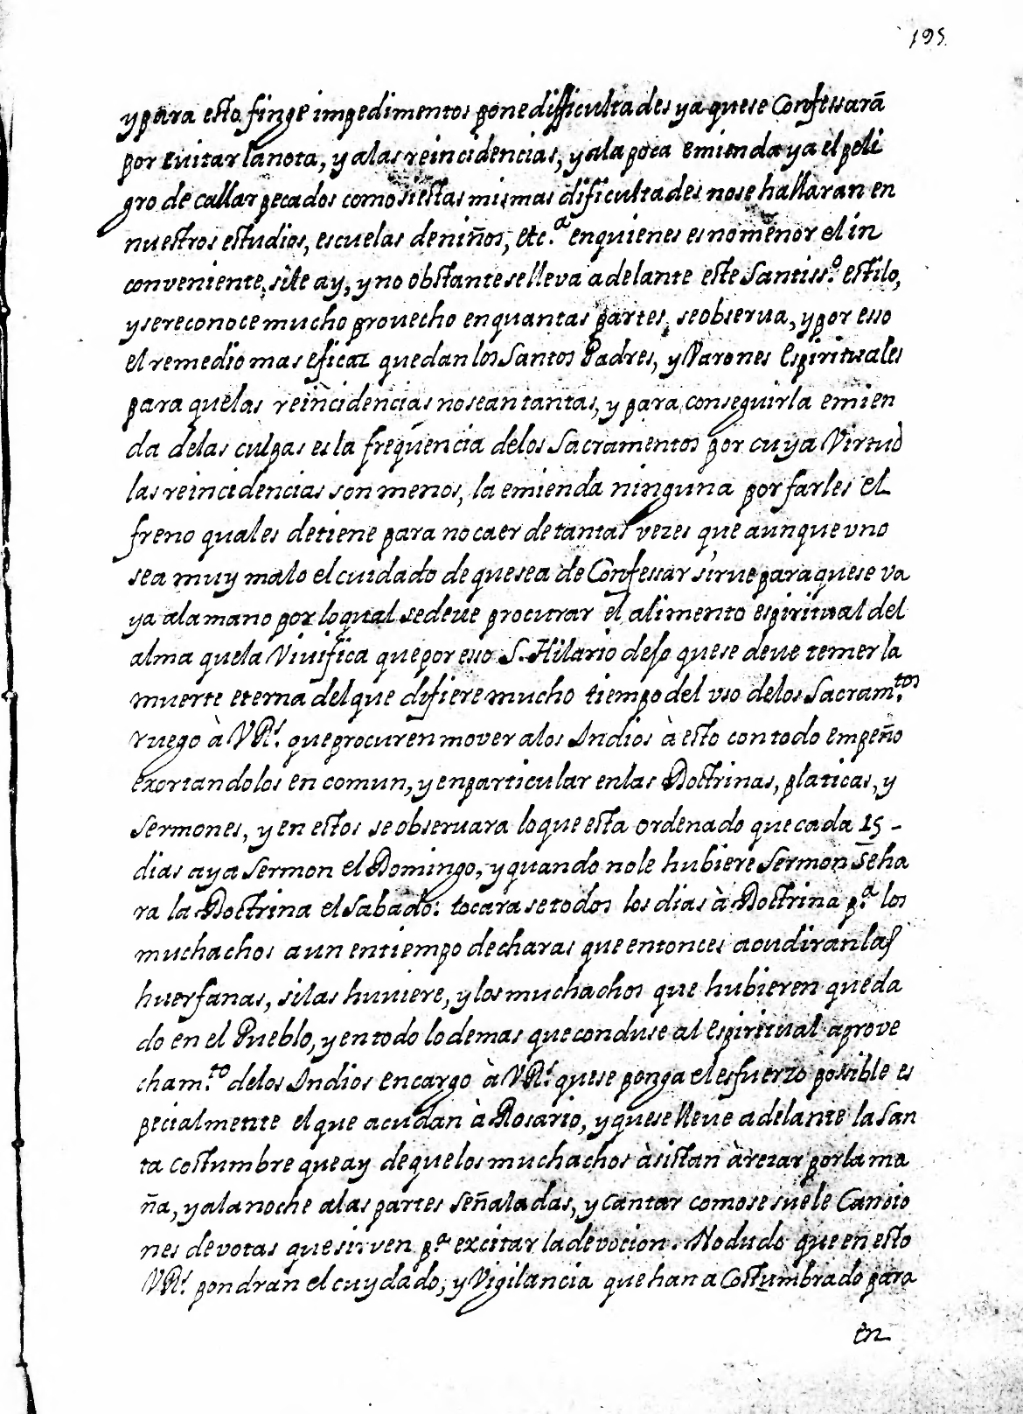 195
y para esto finge impedimentos pone difficultades ya que se Confessarā
por evitar la nota, y a las reincidencias, y a la poca emienda ya el peli
gro de callar pecados como si estas mismas dificultades no se hallaran en
nuestros estudios, escuelas de niños, etc.ª en quienes es no menor el in
conveniente, si le ay, y no obstante se lleva adelante este Santiss.º estilo,
y se reconoce mucho provecho en quantas partes, se observa, y por esso
el remedio mas eficaz que dan los Santos Padres, y Varones Espirituales
para que las reincidencias no sean tantas, y para conseguir la emien
da de las culpas es la freqüencia de los Sacramentos por cuya Virtud
las reincidencias son menos, la emienda ninguna por farles el
freno qual es detiene para no caer de tantas vezes que aunque vno
sea muy malo el cuidado de que sea de Confessar sirve para que se va
ya a la mano por lo qual se deve procurar el alimento espiritual del
alma que la Vivifica que por esso S. Hilario dejo que se deve temer la
muerte eterna del que difiere mucho tiempo del vso de los Sacram.tos
ruego à VR.s que procuren mover a los Indios à esto con todo empeño
exortandolos en comun, y en particular en las Doctrinas, platicas, y
Sermones, y en estos se observara lo que esta ordenado que cada 15 -
dias aya Sermon el Domingo, y quando no le hubiere Sermon Se ha
ra la Doctrina el Sabado: tocara se todos los dias à Doctrina p.ª los
muchachos aun en tiempo de charas que entonces acudiran las
huerfanas, si las huviere, y los muchachos que hubieren queda
do en el Pueblo, y en todo lo demas que conduse al espiritual aprove
cham.to de los Indios encargo à VR.s que se ponga el esfuerzo posible es
pecialmente el que acudan à Rosario, y que se lleve adelante la San
ta costumbre que ay de que los muchachos àsistan à rezar por la ma
ña, y a la noche a las partes señaladas, y Cantar como se suele Cancio
nes devotas que sirven p.ª excitar la devocion. No dudo que en esto
VR.s pondran el cuydado, y Vigilancia que han a Costumbrado para
en